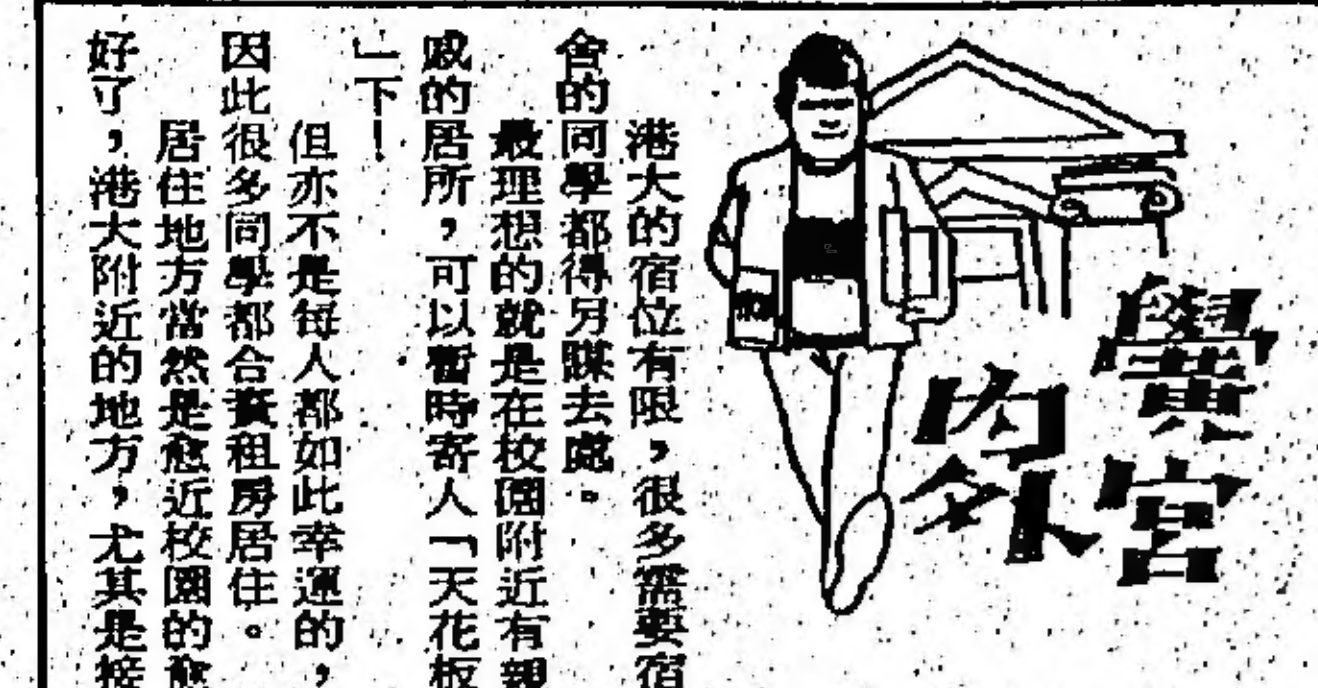 黌宮
內外
港大的宿位有限，很多需要宿
舍的同學都得另謀去處。
最理想的就是在校園附近有親
戚的居所，可以暫時寄人「天花板
」下！
但亦不是每人都如此幸運的，
因此很多同學都合資租房居住。
居住地方當然是愈近校園的愈
好了，港大附近的地方，尤其是接